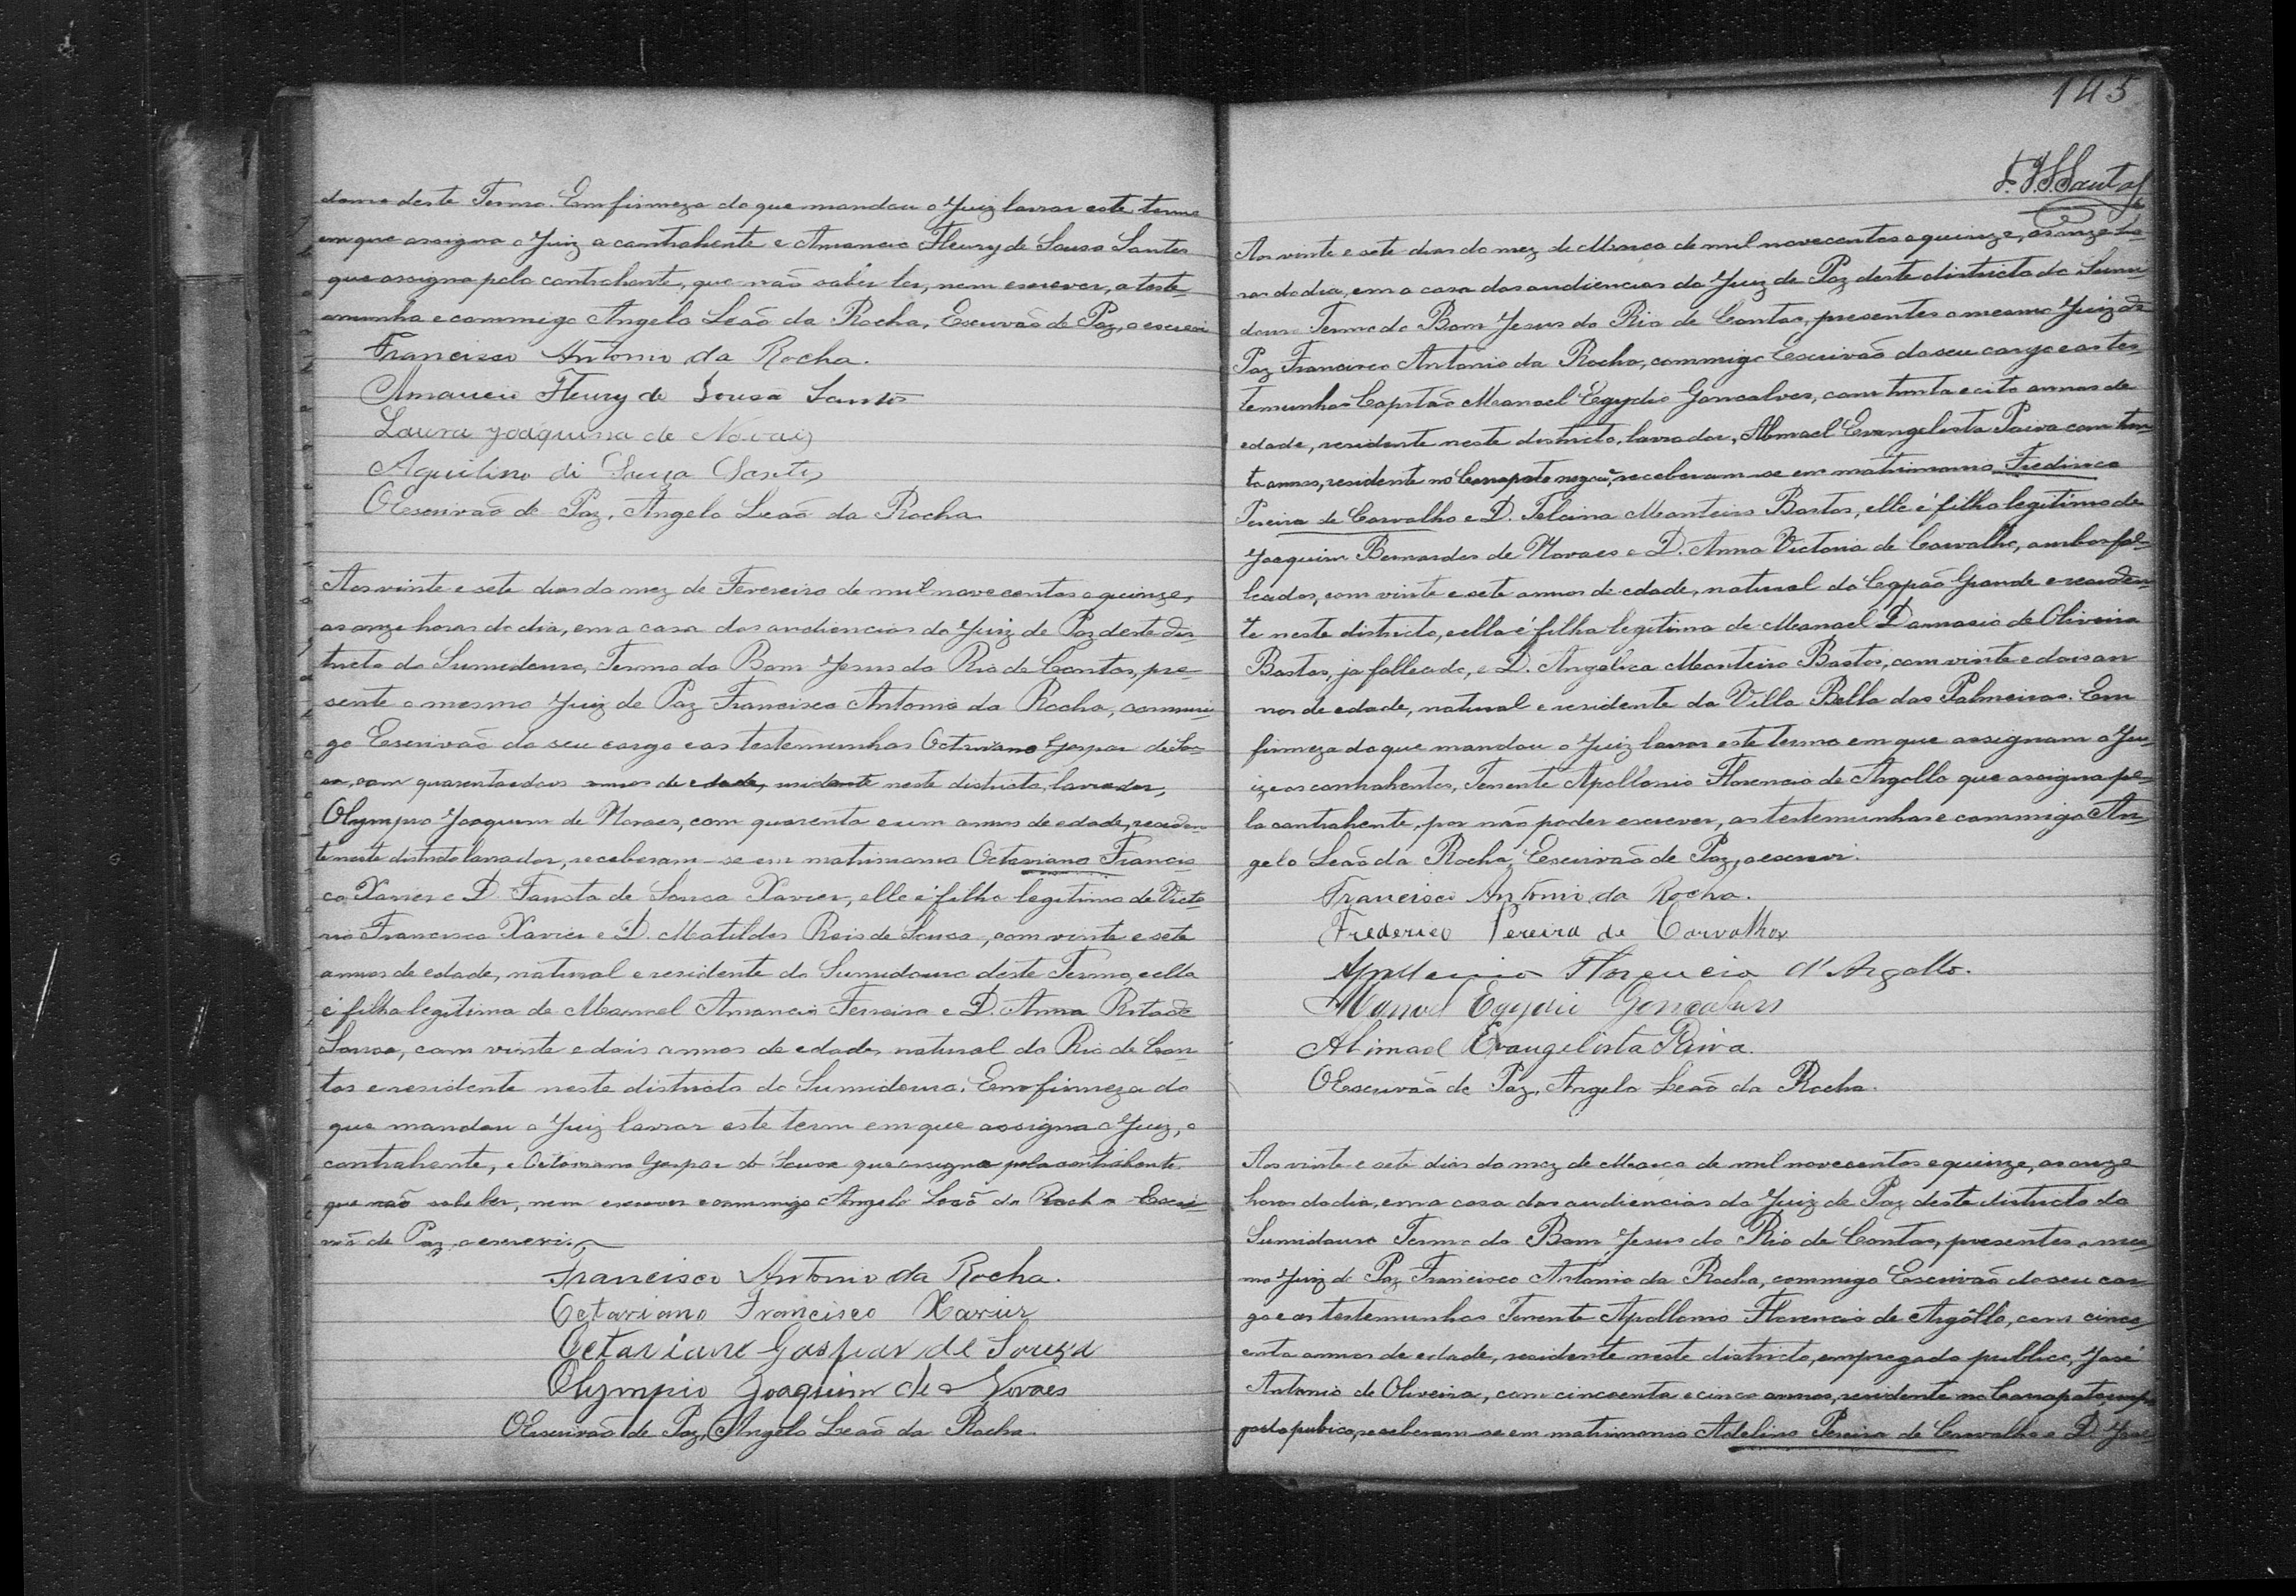 douro deste Termo. Em firmeza do que mandou o Juiz lavrar este termo
em que assigna o Juiz a contrahente e Amancio Fleury de Sousa Santos
que assigna pelo contrahente, que não saber ler, nem escrever, a teste-
emunha e commigo Angelo Leão da Rocha, Escrivão de Paz, o escrevi
Francisco Antonio da Rocha.
Amancio Fleury de Sousa Santos
Laura Joaquina de Novais
Aquilino di Souza Santos
O Escrivão de Paz, Angelo Leão da Rocha
Aos vinte e sete dias do mez de Fevereiro de mil nove centos e quinze,
as onze horas do dia, em a casa das audiencias do Juiz de Paz deste dis-
tricto do Sumidouro, Termo do Bom Jesus do Rio de Contas, pre-
sente o mesmo Juiz de Paz Francisco Antonio da Rocha, commi-
go Escrivão do seu cargo e as testemunhas Octaviano Gaspar de Sou-
sa, com quarenta e dous annos de edade, residente neste districto, lavrador,
Olympio Joaquim de Novaes, com quarenta e um annos de edade, residen-
te neste districto lavrador, receberam-se em matrimonio Octaviano Francis-
co Xavier e D. Fausta de Sousa Xavier, elle é filho legitimo de Victo-
rio Francisco Xavier e D. Matildes Reis de Sousa, com vinte e sete
annos de edade, natural e residente do Sumidouro deste Termo, e ella
é filha legitima de Manoel Amancio Ferreira e D. Anna Rita de
Sousa, com vinte e dois annos de edade, natural do Rio de Con-
tas e residente neste districto do Sumidouro. Em firmeza do
que mandou o Juiz lavrar este term em que assigna o Juiz, o
contrahente, e Octaviano Gaspar de Sousa que assigna pela contrahente
que não sabe ler, nem escrever e commigo Angelo Leão da Rocha Escri-
vão de Paz, o escrevi.
Francisco Antonio da Rocha.
Octaviano Francisco Xavier
Octaviano Gaspar de Souza
Olympio Joaquim de Novaes
O Escrivão de Paz, Angelo Leão da Rocha.
145
F. Santos
Aos vinte e sete dias do mez de Março de mil novecentos e quinze, as onze ho-
ras do dia, em a casa das audiencias do Juiz de Paz deste districto do Sumi-
douro Termo do Bom Jesus do Rio de Contas, presentes o mesmo Juiz de
Paz Francisco Antonio da Rocha, commigo Escrivão do seu cargo e as tes-
temunhas Capitão Manoel Egydio Gonçalves, com trinta e oito annos de
edade, residente neste districto, lavrador, Abmael Evangelista Paiva com trin-
ta annos, residente no Carrapato negoci, receberam-se em matrimonio Frederico
Pereira de Carvalho e D. Telcina Monteiro Bastos, elle é filho legitimo de
Joaquim Bernardes de Novaes e D. Anna Victoria de Carvalho, ambos fal-
lecidos, com vinte e sete annos de edade, natural do Capão Grande e residen-
te neste districto, e ella é filha legitima de Manoel Damasio de Oliveira
Bastos, já fallecido, e D. Angelica Monteiro Bastos, com vinte e dois an
nos de edade, natural e residente da Villa Bella das Palmeiras. Em
firmeza do que mandou o Juiz lavrar este termo em que assignam o Ju-
iz, e os contrahentes, Tenente Apollonio Florencio de Argollo que assigna pe-
la contrahente, por não poder escrever, as testemunhas e commigo An-
gelo Leão da Rocha, Escrivão de Paz, o escrevi.
Francisco Antonio da Rocha.
Frederico Pereira de Carvalho
Apollonio Florencio d'Argollo.
Manoel Egydio Gonçalves
Abimael Evangelista Paiva.
O Escrivão de Paz, Angelo Leão da Rocha.
Aos vinte e sete dias do mez de Março de mil novecentos e quinze, as onze
horas do dia, em a casa das audiencias do Juiz de Paz deste districto do
Sumidouro Termo do Bom Jesus do Rio de Contas, presentes o mes-
mo Juiz de Paz Francisco Antonio da Rocha, commigo Escrivão do seu car-
go e as testemunhas Tenente Apollonio Florencio de Argôllo, com cinco-
enta annos de edade, residente neste districto, empregado publico, José
Antonio de Oliveira, com cincoenta e cinco annos, residente no Carrapato, empre-
gado pubico, receberam-se em matrimonio Adelino Pereira de Carvalho e D. José-